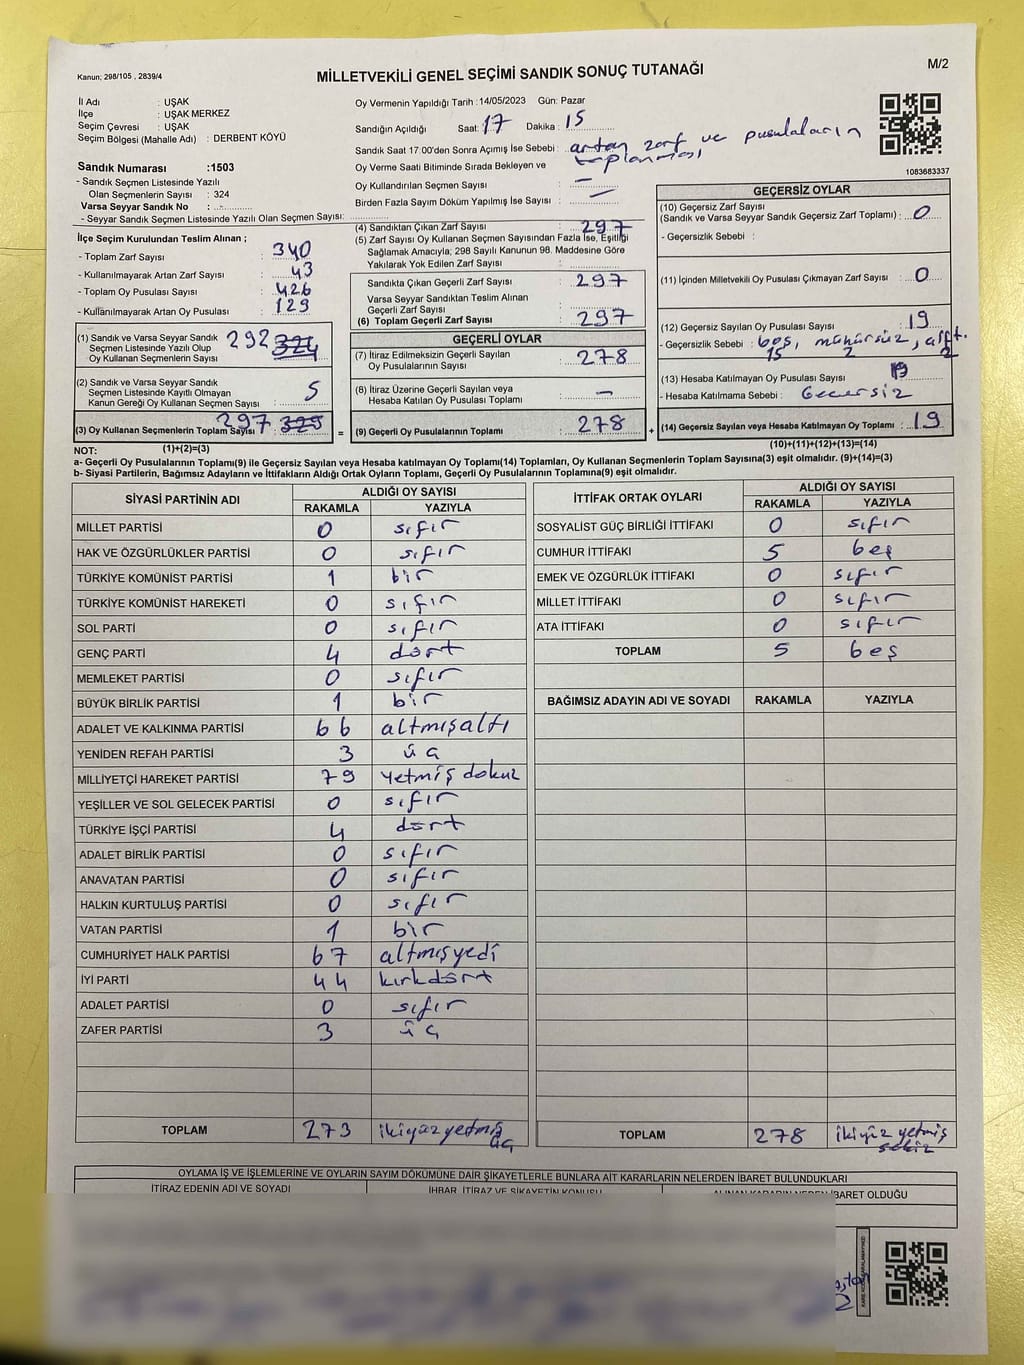 Kanun; 298/105 , 2839/4
MİLLETVEKİLİ GENEL SEÇİMİ SANDIK SONUÇ TUTANAĞI
M/2
İl Adı : UŞAK
İlçe : UŞAK MERKEZ
Seçim Çevresi : UŞAK
Seçim Bölgesi (Mahalle Adı) : DERBENT KÖYÜ
Sandık Numarası :1503
- Sandık Seçmen Listesinde Yazılı
Olan Seçmenlerin Sayısı : 324
Varsa Seyyar Sandık No :
- Seyyar Sandık Seçmen Listesinde Yazılı Olan Seçmen Sayısı:
Oy Vermenin Yapıldığı Tarih :14/05/2023 Gün: Pazar
Sandığın Açıldığı Saat: 17 Dakika : 15
Sandık Saat 17.00'den Sonra Açımış İse Sebebi : artan zarf ve pusulaların
toplanması
Oy Verme Saati Bitiminde Sırada Bekleyen ve
Oy Kullandırılan Seçmen Sayısı : —
Birden Fazla Sayım Döküm Yapılmış İse Sayısı : —
1083683337
İlçe Seçim Kurulundan Teslim Alınan ;
- Toplam Zarf Sayısı : 340
- Kullanılmayarak Artan Zarf Sayısı : 43
- Toplam Oy Pusulası Sayısı : 426
- Kullanılmayarak Artan Oy Pusulası : 129
(1) Sandık ve Varsa Seyyar Sandık
Seçmen Listesinde Yazılı Olup
Oy Kullanan Seçmenlerin Sayısı : 292 324
(2) Sandık ve Varsa Seyyar Sandık
Seçmen Listesinde Kayıtlı Olmayan
Kanun Gereği Oy Kullanan Seçmen Sayısı : 5
(3) Oy Kullanan Seçmenlerin Toplam Sayısı : 297 329
(1)+(2)=(3)
(4) Sandıktan Çıkan Zarf Sayısı : 297
(5) Zarf Sayısı Oy Kullanan Seçmen Sayısından Fazla İse, Eşitliği
Sağlamak Amacıyla; 298 Sayılı Kanunun 98. Maddesine Göre
Yakılarak Yok Edilen Zarf Sayısı :
Sandıkta Çıkan Geçerli Zarf Sayısı : 297
Varsa Seyyar Sandıktan Teslim Alınan
Geçerli Zarf Sayısı :
(6) Toplam Geçerli Zarf Sayısı : 297
GEÇERLİ OYLAR
(7) İtiraz Edilmeksizin Geçerli Sayılan
Oy Pusulalarının Sayısı : 278
(8) İtiraz Üzerine Geçerli Sayılan veya
Hesaba Katılan Oy Pusulası Toplamı : —
= (9) Geçerli Oy Pusulalarının Toplamı : 278 +
GEÇERSİZ OYLAR
(10) Geçersiz Zarf Sayısı
(Sandık ve Varsa Seyyar Sandık Geçersiz Zarf Toplamı) : 0
- Geçersizlik Sebebi :
(11) İçinden Milletvekili Oy Pusulası Çıkmayan Zarf Sayısı : 0
(12) Geçersiz Sayılan Oy Pusulası Sayısı : 19
- Geçersizlik Sebebi : boş, mühürsüz, çift.
15 2 2
(13) Hesaba Katılmayan Oy Pusulası Sayısı
- Hesaba Katılmama Sebebi : Geçersiz
(14) Geçersiz Sayılan veya Hesaba Katılmayan Oy Toplamı : 19
(10)+(11)+(12)+(13)=(14)
NOT:
a- Geçerli Oy Pusulalarının Toplamı(9) ile Geçersiz Sayılan veya Hesaba katılmayan Oy Toplamı(14) Toplamları, Oy Kullanan Seçmenlerin Toplam Sayısına(3) eşit olmalıdır. (9)+(14)=(3)
b- Siyasi Partilerin, Bağımsız Adayların ve İttifakların Aldığı Ortak Oyların Toplamı, Geçerli Oy Pusulalarının Toplamına(9) eşit olmalıdır.
SİYASİ PARTİNİN ADI ALDIĞI OY SAYISI
RAKAMLA YAZIYLA
MİLLET PARTİSİ 0 sıfır
HAK VE ÖZGÜRLÜKLER PARTİSİ 0 sıfır
TÜRKİYE KOMÜNİST PARTİSİ 1 bir
TÜRKİYE KOMÜNİST HAREKETİ 0 sıfır
SOL PARTİ 0 sıfır
GENÇ PARTİ 4 dört
MEMLEKET PARTİSİ 0 sıfır
BÜYÜK BİRLİK PARTİSİ 1 bir
ADALET VE KALKINMA PARTİSİ 66 altmışaltı
YENİDEN REFAH PARTİSİ 3 üç
MİLLİYETÇİ HAREKET PARTİSİ 79 yetmiş dokuz
YEŞİLLER VE SOL GELECEK PARTİSİ 0 sıfır
TÜRKİYE İŞÇİ PARTİSİ 4 dört
ADALET BİRLİK PARTİSİ 0 sıfır
ANAVATAN PARTİSİ 0 sıfır
HALKIN KURTULUŞ PARTİSİ 0 sıfır
VATAN PARTİSİ 1 bir
CUMHURİYET HALK PARTİSİ 67 altmışyedi
İYİ PARTİ 44 kırkdört
ADALET PARTİSİ 0 sıfır
ZAFER PARTİSİ 3 üç
TOPLAM 273 ikiyüzyetmiş
üç
İTTİFAK ORTAK OYLARI ALDIĞI OY SAYISI
RAKAMLA YAZIYLA
SOSYALİST GÜÇ BİRLİĞİ İTTİFAKI 0 sıfır
CUMHUR İTTİFAKI 5 beş
EMEK VE ÖZGÜRLÜK İTTİFAKI 0 sıfır
MİLLET İTTİFAKI 0 sıfır
ATA İTTİFAKI 0 sıfır
TOPLAM 5 beş
BAĞIMSIZ ADAYIN ADI VE SOYADI RAKAMLA YAZIYLA
TOPLAM 278 ikiyüz yetmiş
sekiz
OYLAMA İŞ VE İŞLEMLERİNE VE OYLARIN SAYIM DÖKÜMÜNE DAİR ŞİKAYETLERLE BUNLARA AİT KARARLARIN NELERDEN İBARET BULUNDUKLARI
İTİRAZ EDENİN ADI VE SOYADI İHBAR, İTİRAZ VE ŞİKAYETİN KONUSU ALINAN KARARIN NEDEN İBARET OLDUĞU